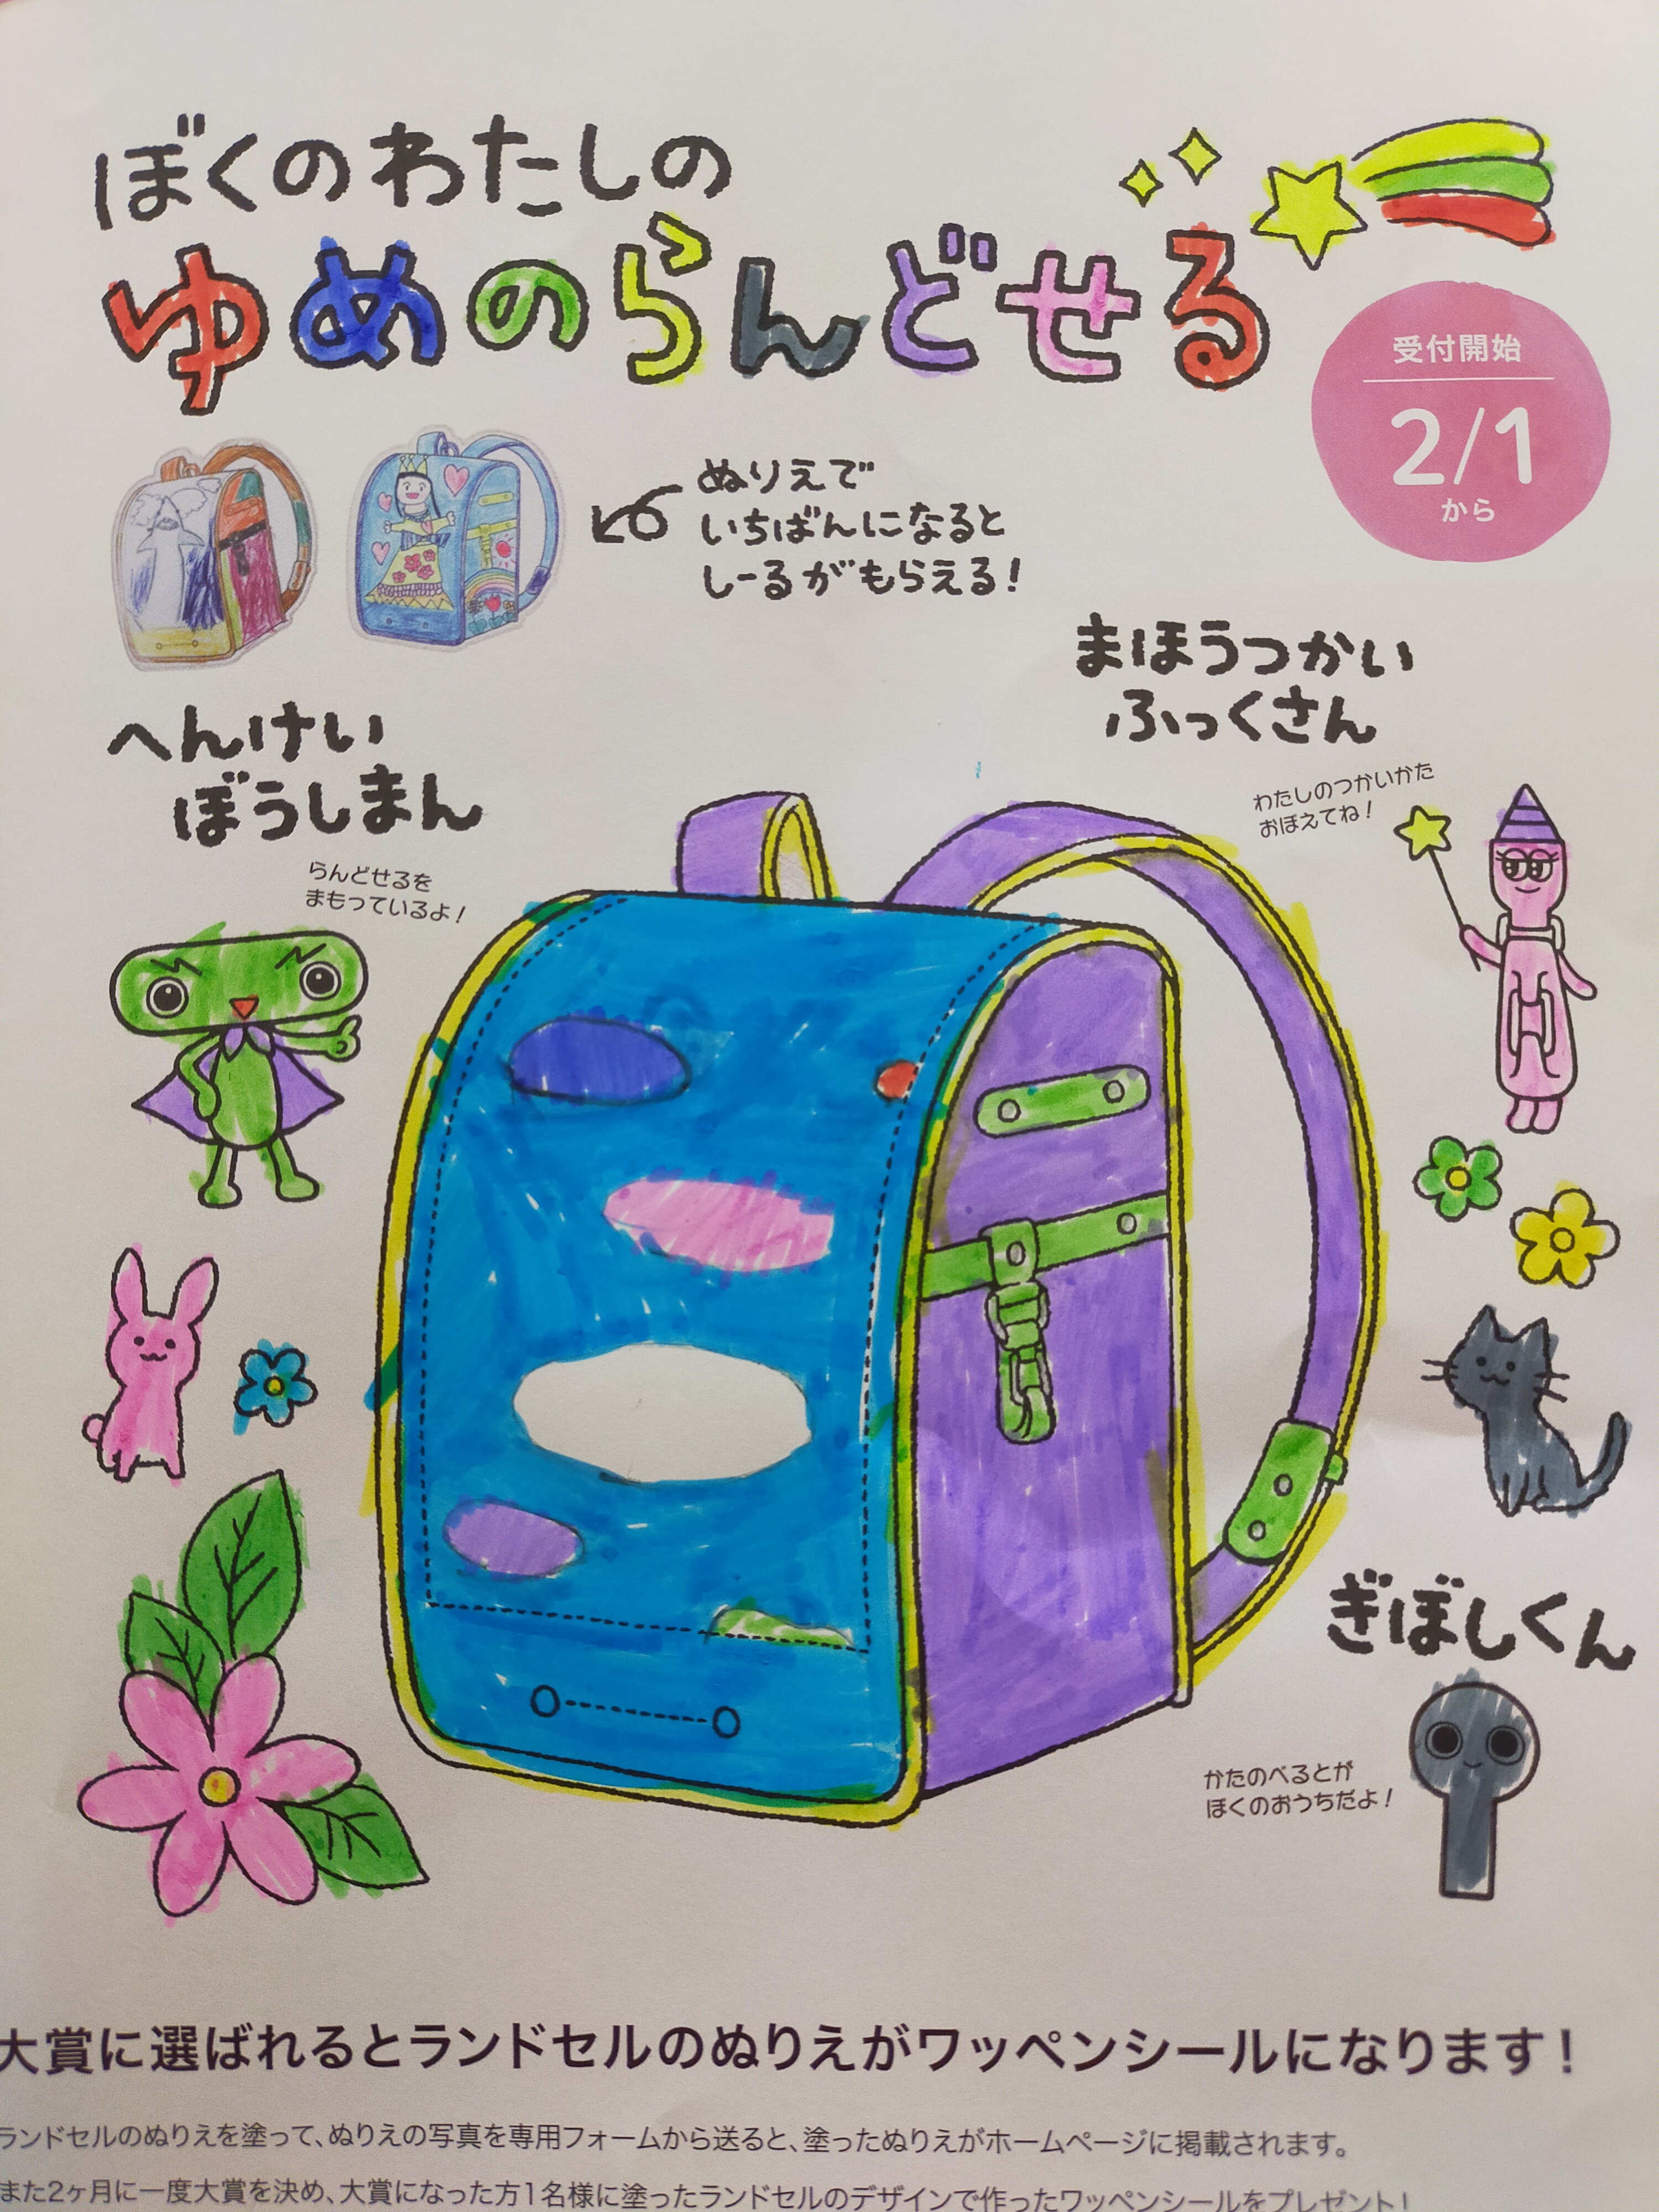 ぼくのわたしの
ゆめのらんどせる
受付開始
2/1
から
ぬりえで
いちばんになると
しーるがもらえる！
まほうつかい
ふっくさん
わたしのつかいかた
おぼえてね！
へんけい
ぼうしまん
らんどせるを
まもっているよ！
ぎぼしくん
かたのべるとが
ぼくのおうちだよ！
大賞に選ばれるとランドセルのぬりえがワッペンシールになります！
ランドセルのぬりえを塗って、ぬりえの写真を専用フォームから送ると、塗ったぬりえがホームページに掲載されます。
また2ヶ月に一度大賞を決め、大賞になった方1名様に塗ったランドセルのデザインで作ったワッペンシールをプレゼント！